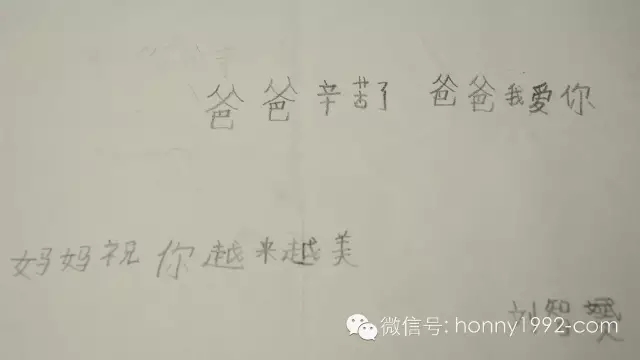 爸爸辛苦了 爸爸我爱你
妈妈祝你越来越美
刘智
微信号: honny1992-com